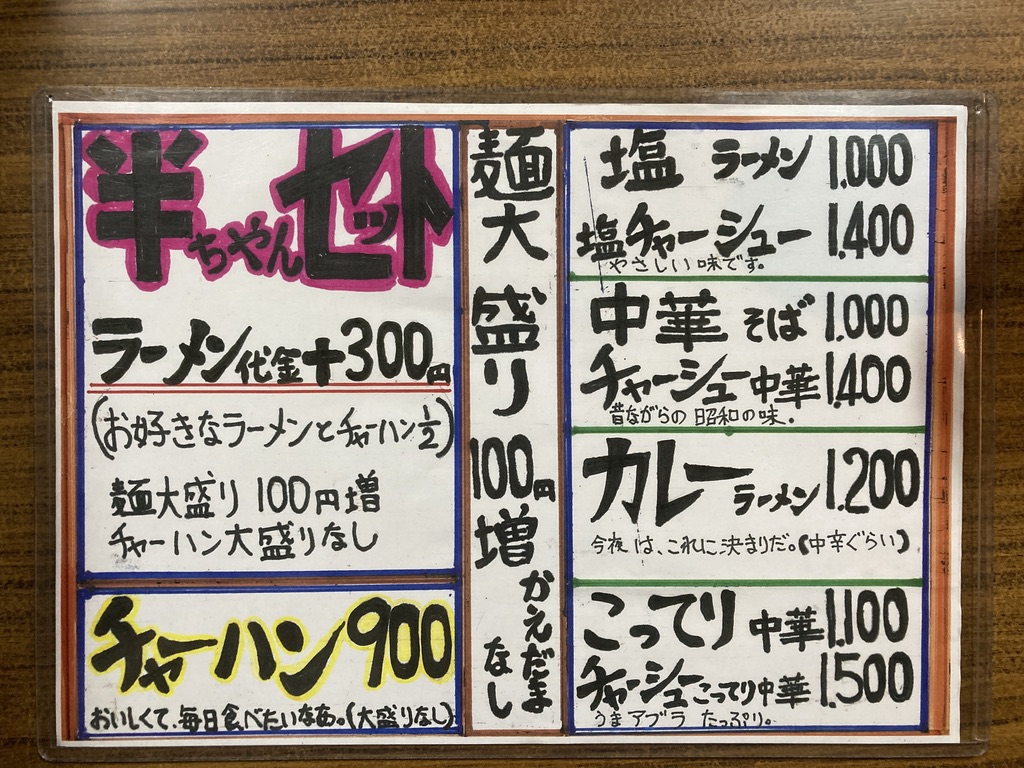 半ちゃんセット
ラーメン代金+300円
(お好きなラーメンとチャーハン1/2)
麺大盛り100円増
チャーハン大盛りなし
チャーハン900
おいしくて、毎日食べたいなあ。(大盛りなし)
麺大盛り100円増
かえだま
なし
塩ラーメン1.000
塩チャーシュー1.400
やさしい味です。
中華そば1.000
チャーシュー中華1.400
昔ながらの昭和の味.
カレーラーメン1.200
今夜は、これに決まりだ。(中辛ぐらい)
こってり中華1.100
チャーシューこってり中華1.500
うまアブラたっぷり。